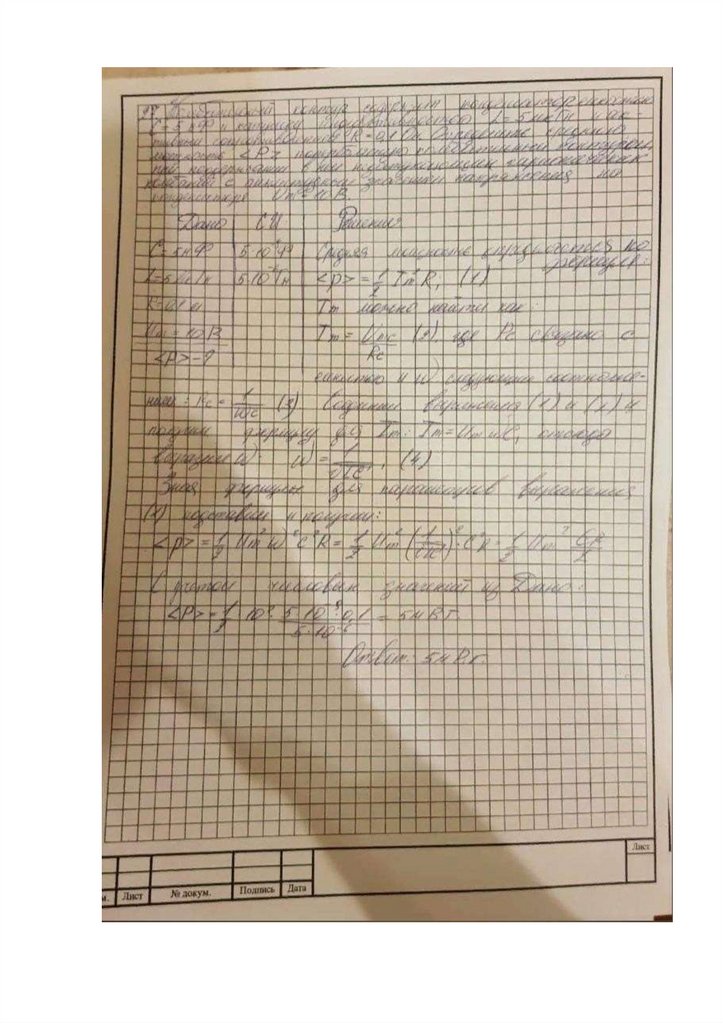 контур содержит
C = 5 нФ и катушку индуктивностью L = 5 мкГн и ак-
тивным сопротивлением R = 0,1 Ом. Определите среднюю
мощность <P>, потребляемую колебательным контуром,
при поддержании в нем незатухающих гармонических
колебаний с амплитудным значением напряжения на
конденсаторе Um =
Дано СИ Решение
C = 5 нФ 5·10⁻⁹Ф Средняя мощность определяется по
формуле:
L = 5 мкГн 5·10⁻⁶Гн <P> = 1/2 Im² R, (1)
R = 0,1 Ом Im можно найти как:
Um = 10 В Im = Umc/Rc (2), где Rc связано с
<P> - ?
емкостью и W следующим соотноше-
нием: Rc = 1/WC (3) выражения (1) и (2) и
получим формулу для Im: Im = Um W C, отсюда
выразим W: W = 1/√LC, (4)
Зная формулы для параметров выражения
(1) подставим и получим:
<P> = 1/2 Um² W² C² R = 1/2 Um² (1/√LC)² · C² R = 1/2 Um² CR/L
С учетом числовых значений из Дано:
<P> = 1/2 · 10² · 5·10⁻⁹·0,1/5·10⁻⁶ = 5 мВт
Ответ: 5 мВт.
Лист
Лист № докум. Подпись Дата